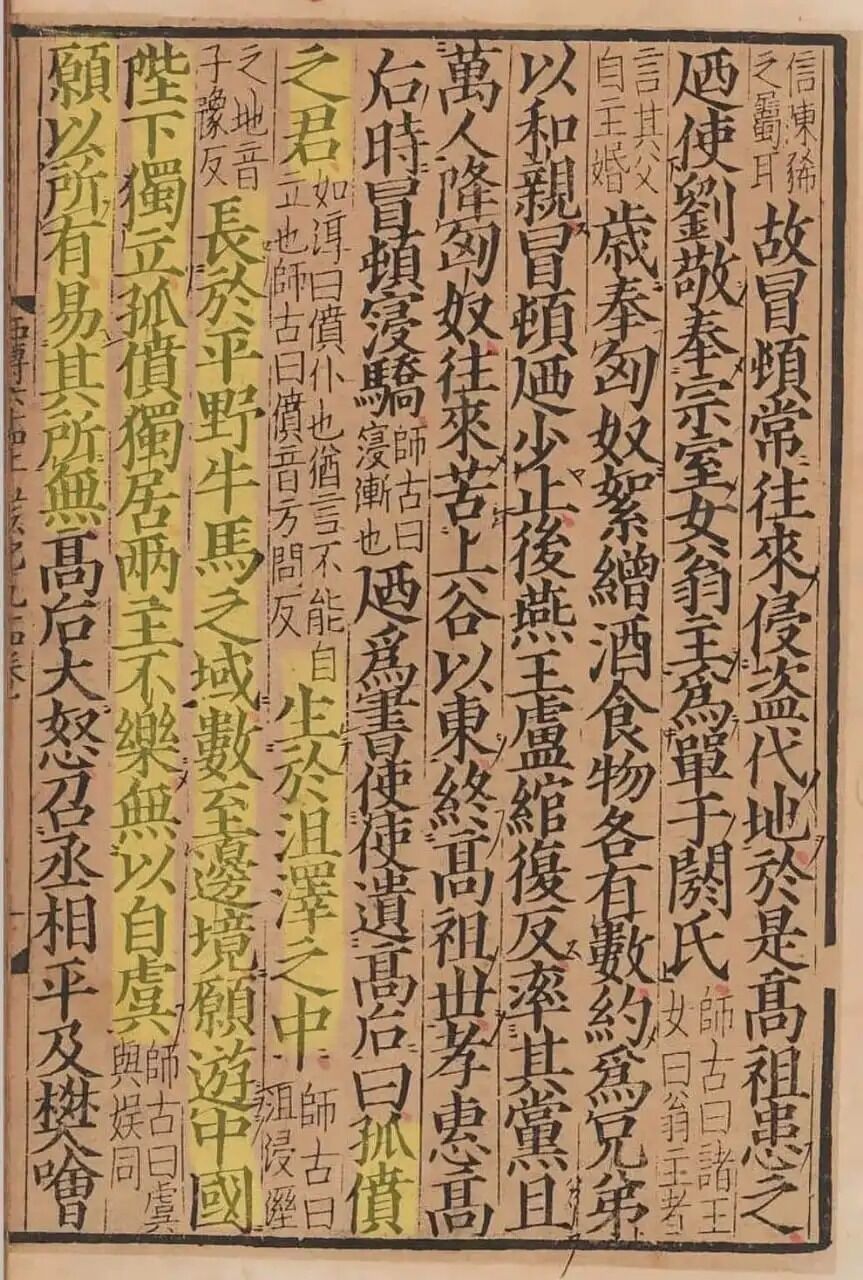 信陳狶之屬耳故冒頓常往來侵盗代地於是髙祖患之
廼使劉敬奉宗室女翁主爲單于閼氏師古曰諸王女曰翁主者
言其父自主婚歳奉匈奴絮繒酒食物各有數約爲兄弟
以和親冒頓廼少止後燕王盧綰復反率其黨且
萬人降匈奴往來苦上谷以東終髙祖世孝惠髙
后時冒頓寖驕師古曰寖漸也廼爲書使使遺髙后曰孤僨
之君如淳曰僨仆也猶言不能自立也師古曰僨音方問反生於沮澤之中師古曰沮浸溼
之地音子豫反長於平野牛馬之域數至邊境願遊中國
陛下獨立孤僨獨居兩主不樂無以自虞師古曰虞與娱同
願以所有易其所無髙后大怒召丞相平及樊噲